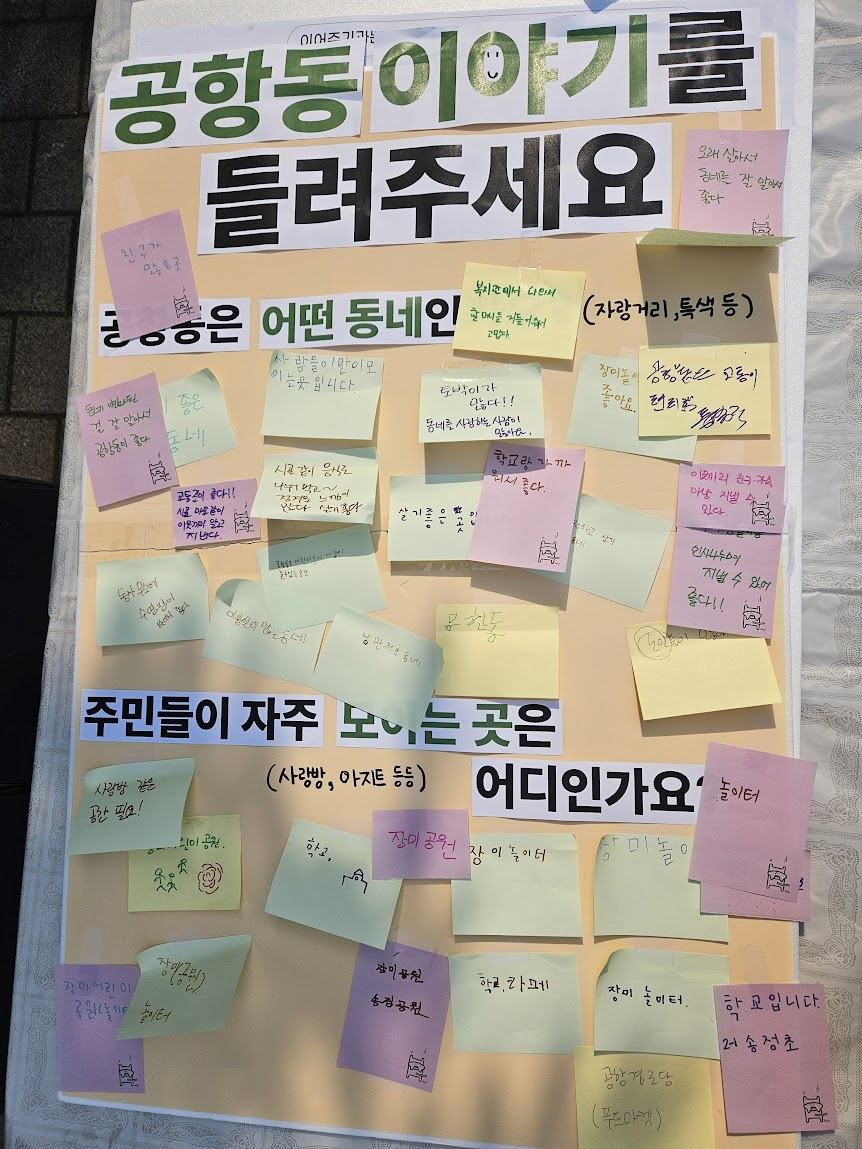 이어주기라는
공항동 이야기를
들려주세요
오래 살아서
동네를 잘 알아서
좋다
친구가
많은 곳
공항동은 어떤 동네인
(자랑거리, 특색 등)
복지관에서 나와서
고맙다.
사람들이 많이 모
이는 곳 입니다
토박이가
많다!!
동네를 사랑하는 사람이
많아요.
장미놀이
좋아요.
교통이
편리함
좋은
동네
걸 잘 알아서
공항동이 좋다
시골같이 음식도
나눠 먹고~
살기 좋은 곳입
학교랑 가까
워서 좋다.
교통편이 좋다!!
시골 마을같이
이웃끼리 알고
지낸다.
이웃끼리 친구·가족
마냥 지낼 수
있다
인사나누며
지낼 수 있어
좋다!!
수영장이
많은 동네
낭만적인 동네
공항동
노인들이
주민들이 자주 모이는 곳은
(사랑방, 아지트 등등)
어디인가요?
사랑방 같은
공간 필요!
어린이 공원.
학교,
장미공원
장미놀이터
장미놀이
놀이터
장미어린이
공원(놀이터
장미(공원)
놀이터
장미공원
송정공원
학교, 카페
장미 놀이터.
학교입니다.
송정초
공항경로당
(푸드마켓)